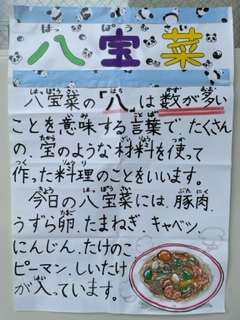 八宝菜
八宝菜の「八」は数が多い
ことを意味する言葉で、たくさん
の宝のような材料を使って
作った料理のことをいいます。
今日の八宝菜には、豚肉、
うずら卵、たまねぎ、キャベツ、
にんじん、たけのこ
ピーマン、しいたけ
が入っています。